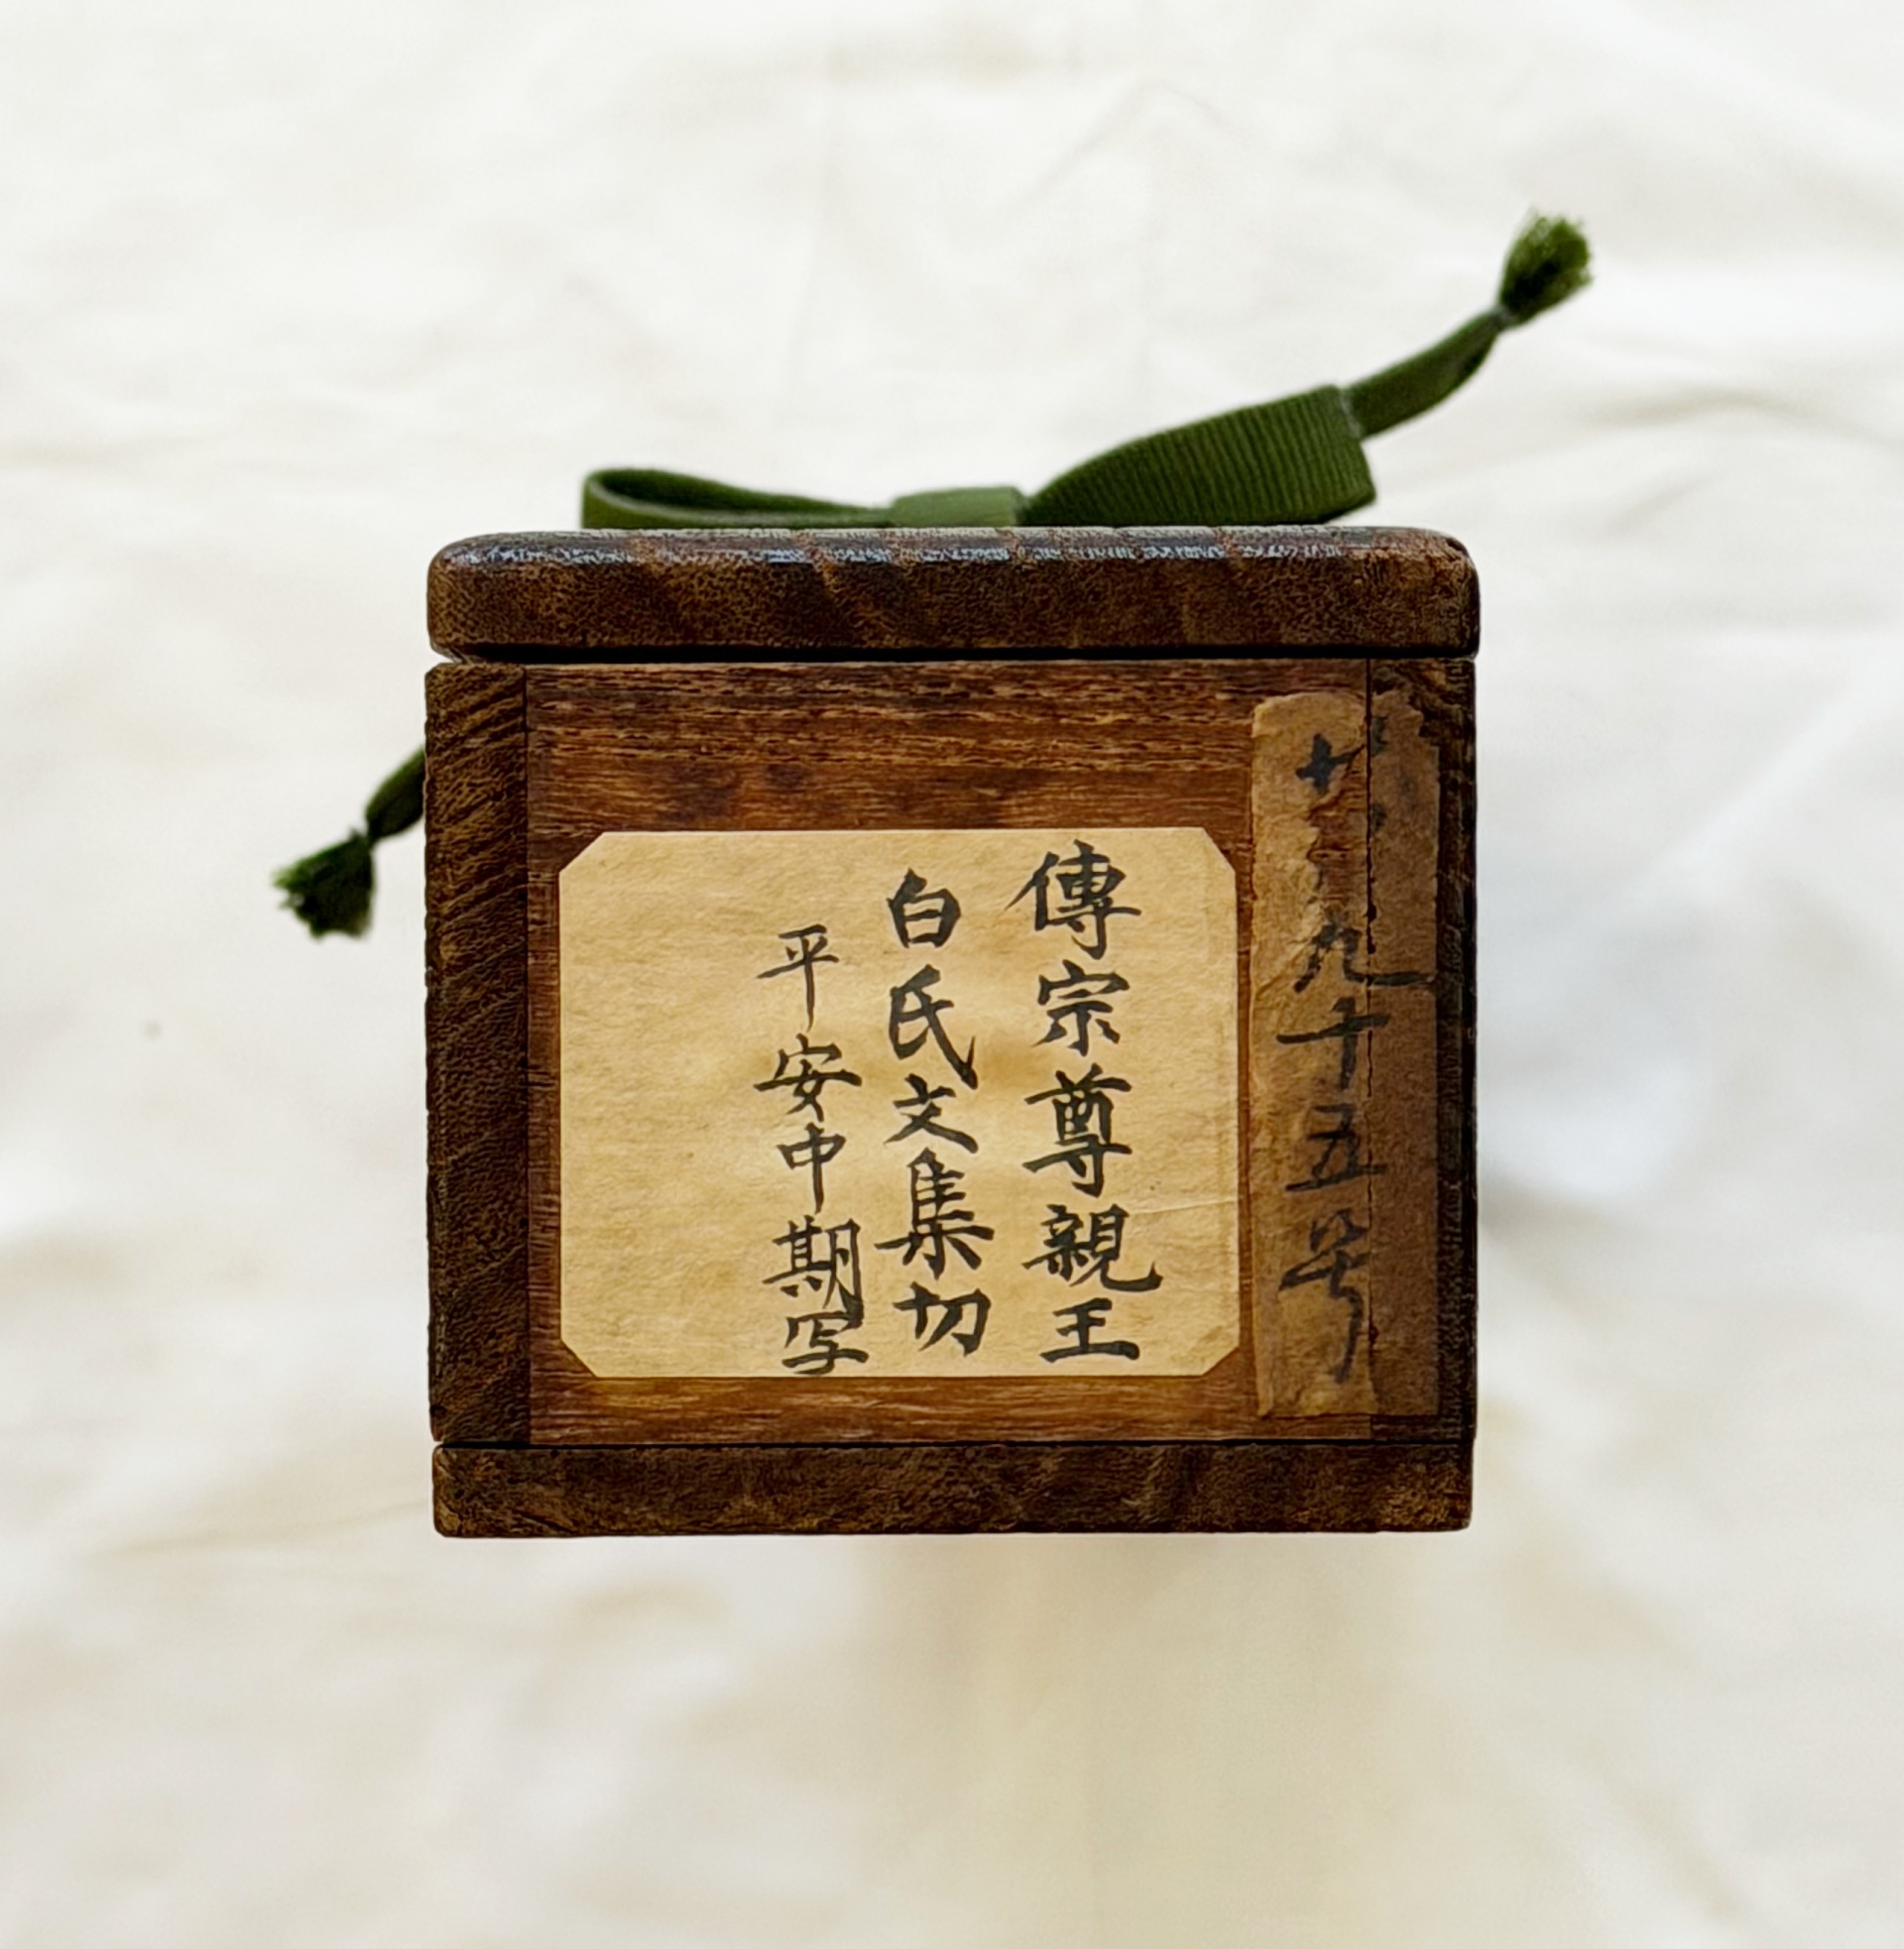 九十五号
傳宗尊親王
白氏文集切
平安中期写